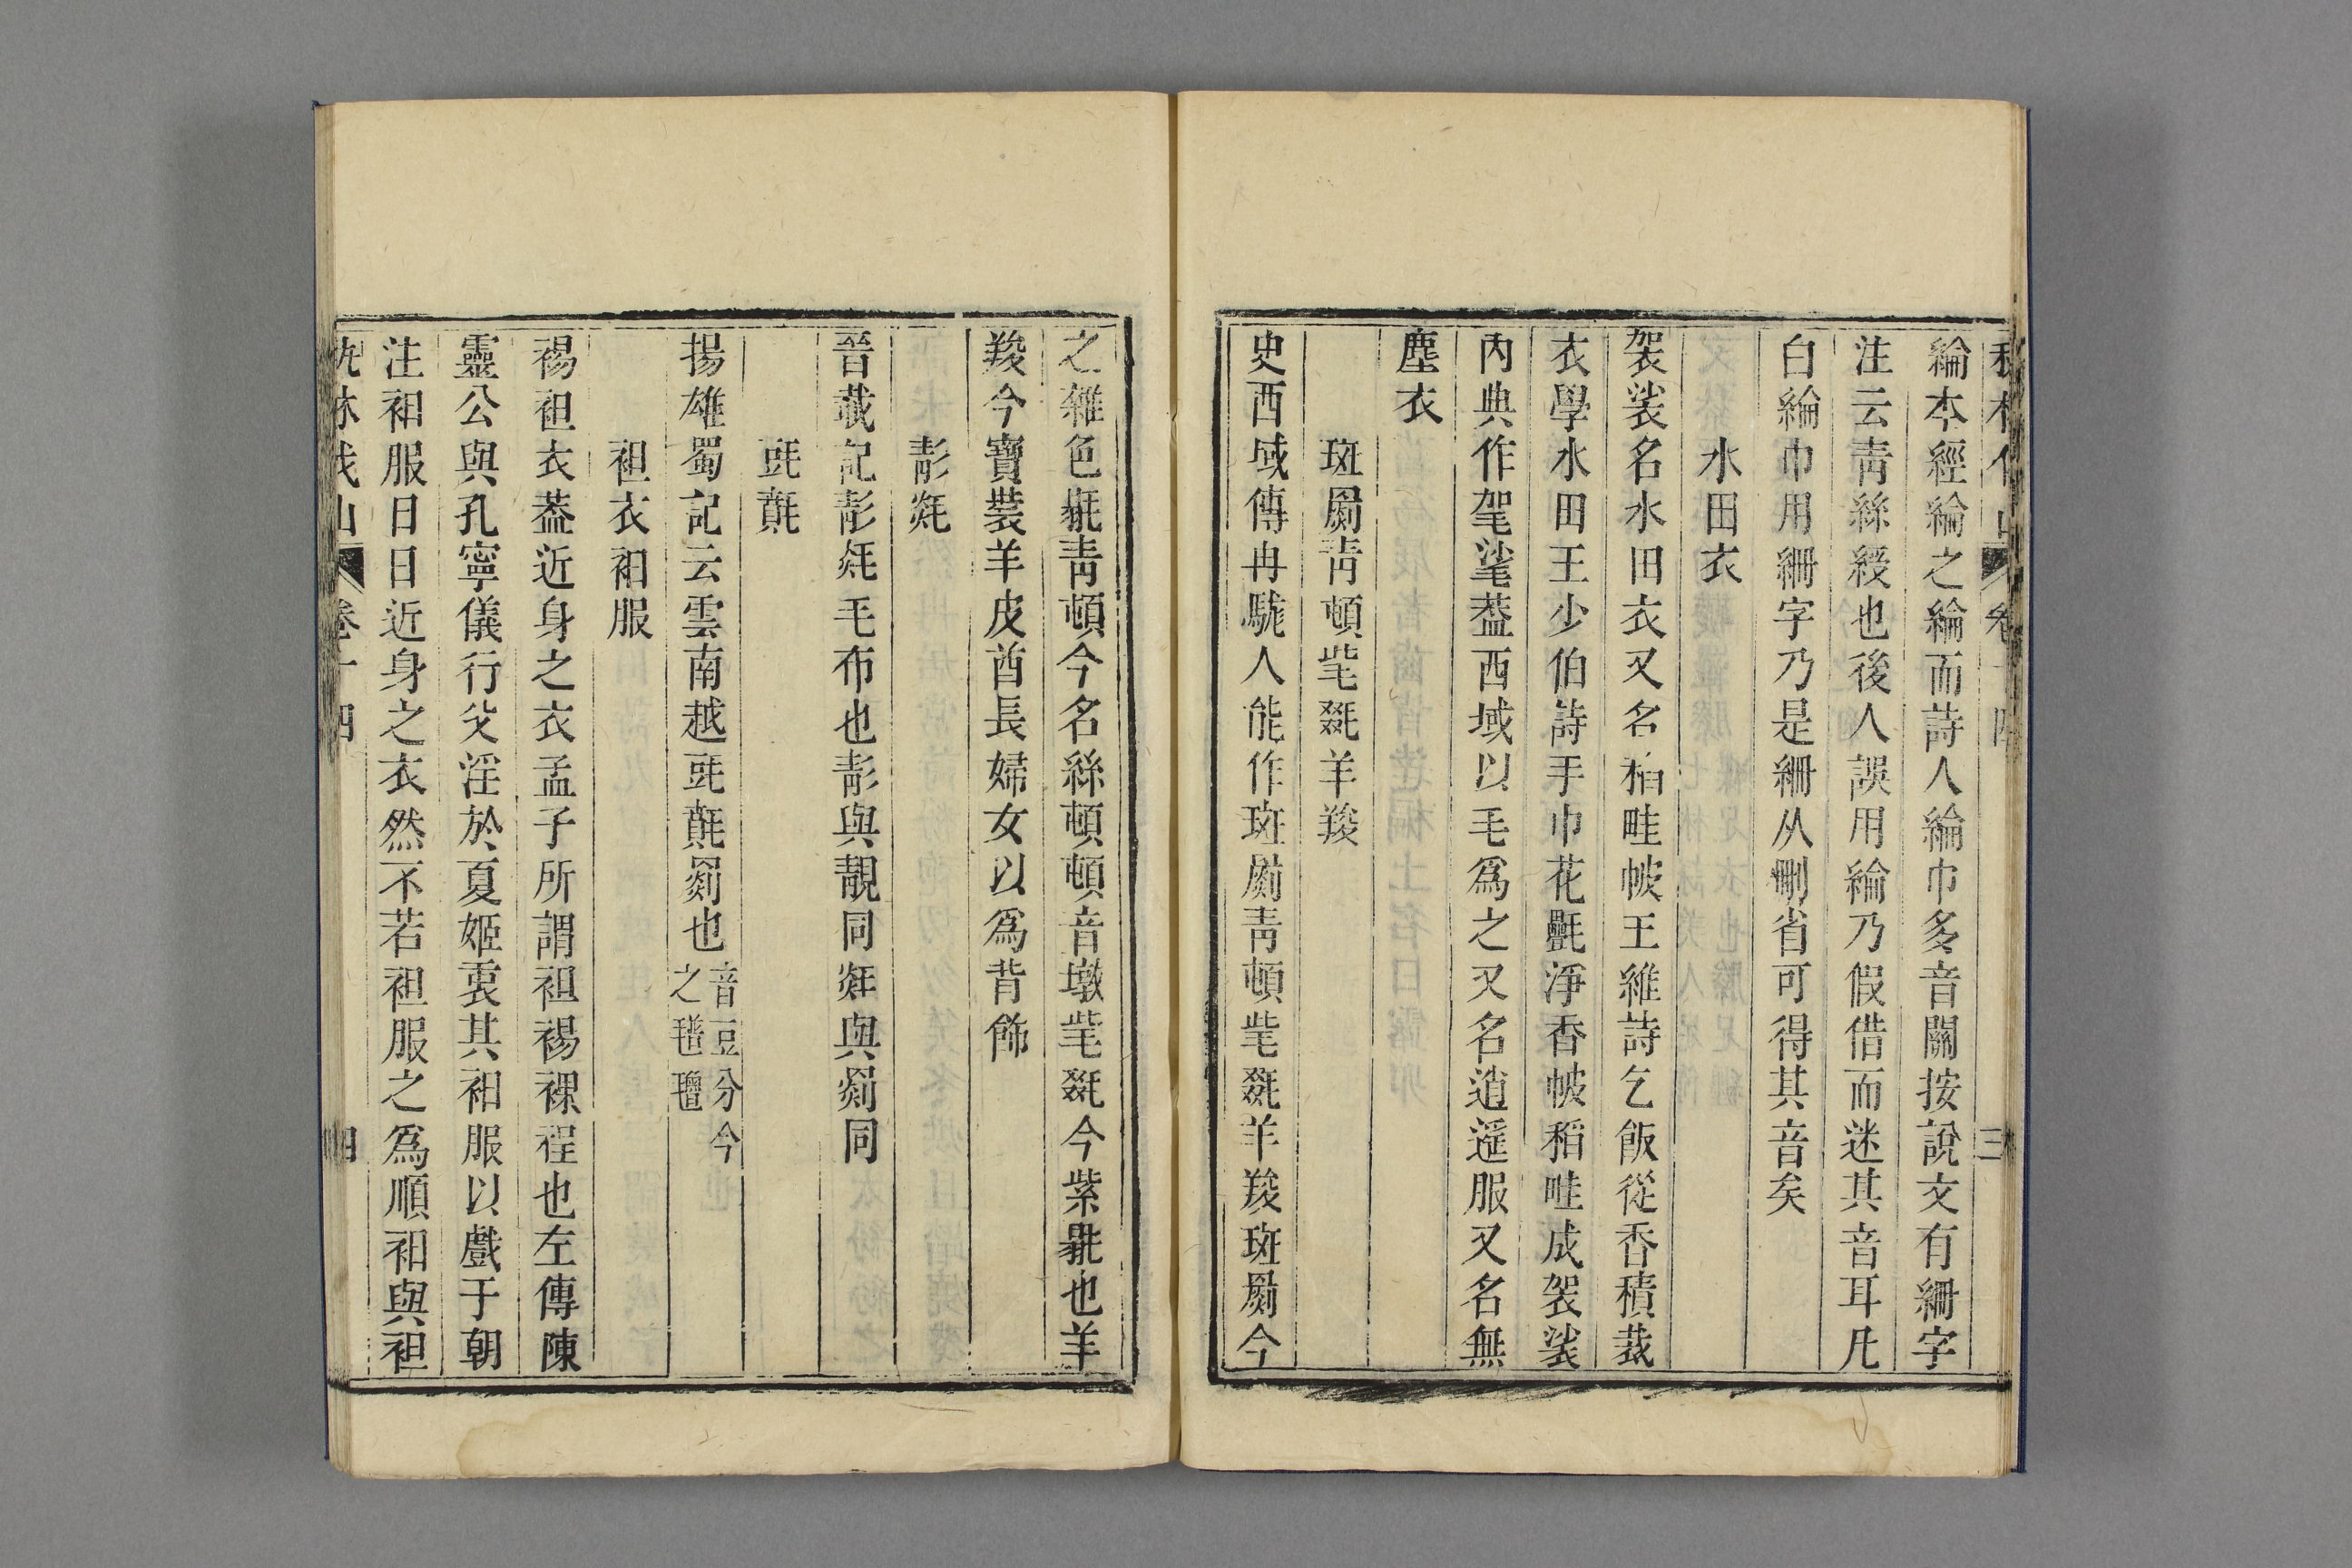 綸本經綸之綸而詩人綸巾多音關按說文有䌟字
注云青絲綬也後人誤用綸乃假借而迷其音耳凡
白綸巾用䌟字乃是䌟从刪省可得其音矣
水田衣
袈裟名水田衣又名稻畦帔王維詩乞飯從香積裁
衣學水田王少伯詩手巾花氎淨香帔稻畦成袈裟
內典作毠㲚葢西域以毛爲之又名逍遥服又名無
塵衣
斑罽青頓毞毲羊羧
史西域傳冉駹人能作斑罽青頓毞毲羊羧斑罽今
之雜色毼青頓今名絲頓頓音墩毞毲今紫氍也羊
羧今寶裝羊皮酋長婦女以爲背飾
㲋㲦
晉載記㲋㲦毛布也㲋與靚同㲦與罽同
㲉㲓
揚雄蜀記云雲南越㲉㲓罽也音豆分今
之氆氌
袒衣衵服
裼袒衣葢近身之衣孟子所謂袒裼裸程也左傳陳
靈公與孔寧儀行父淫於夏姬衷其衵服以戲于朝
注衵服日日近身之衣然不若袒服之爲順衵與袒
卷十四
四